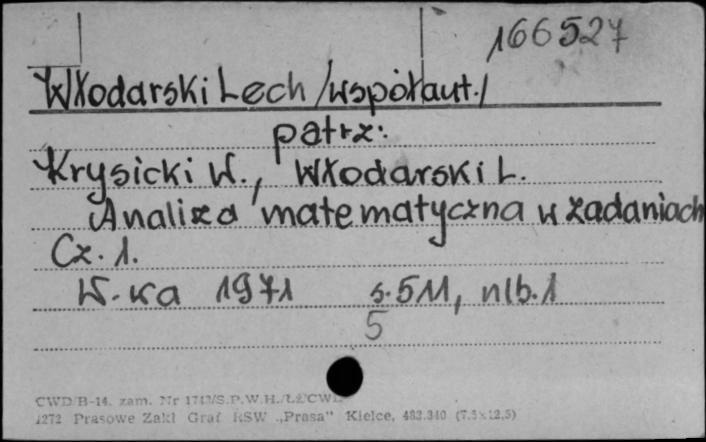 166527
Włodarski Lech /współaut./
patrz:
Krysicki W., Włodarski L.
Analiza matematyczna w zadaniach
Cz. 1.
W-wa 1971 s. 511, nlb. 1
5
CWD/B-14. zam. Nr 1743/S.P.W.H./ŁŻCWD
1272 Prasowe Zakł Graf RSW „Prasa" Kielce, 483.340 (7,5×12,5)